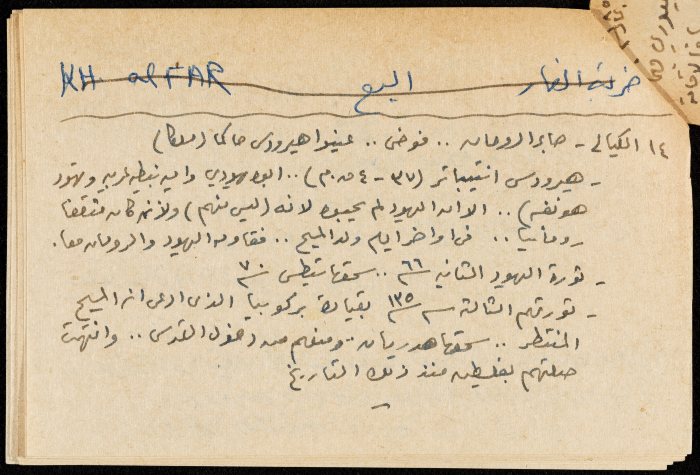 خربة الفار اليهود KH al FAR
١٤ الكيالي - صابر الرومان .. فوضى .. عينوا هيرودس حاكما (ملكا)
- هيرودس انتيباتر (٣٧ - ٤ ق.م) .. ابوه يهودي وامه نبطية عربية وتهود
هو نفسه) .. الا ان اليهود لم يحبوه لانه (ليس منهم) ولأنه كان مثقفا
رومانيا .. في اواخر ايامه ولد المسيح .. فقاومه اليهود والرومان معا.
- ثورة اليهود الثانية سنة ٦٦ .. سحقها تيطس سنة ٧٠
- ثورتهم الثالثة سنة ١٣٥ بقيادة بركوبيا الذي ادعى انه المسيح
المنتظر .. سحقها هدريان .. ومنعهم من دخول القدس .. وانتهت
صلتهم بفلسطين منذ ذلك التاريخ